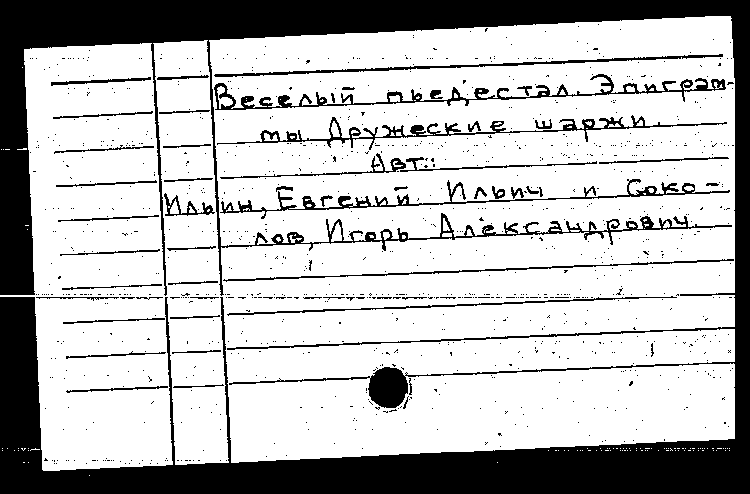 Веселый пьедестал. Эпиграм-
мы Дружеские шаржи.
Авт.:
Ильин, Евгений Ильич и Соко-
лов, Игорь Александрович.